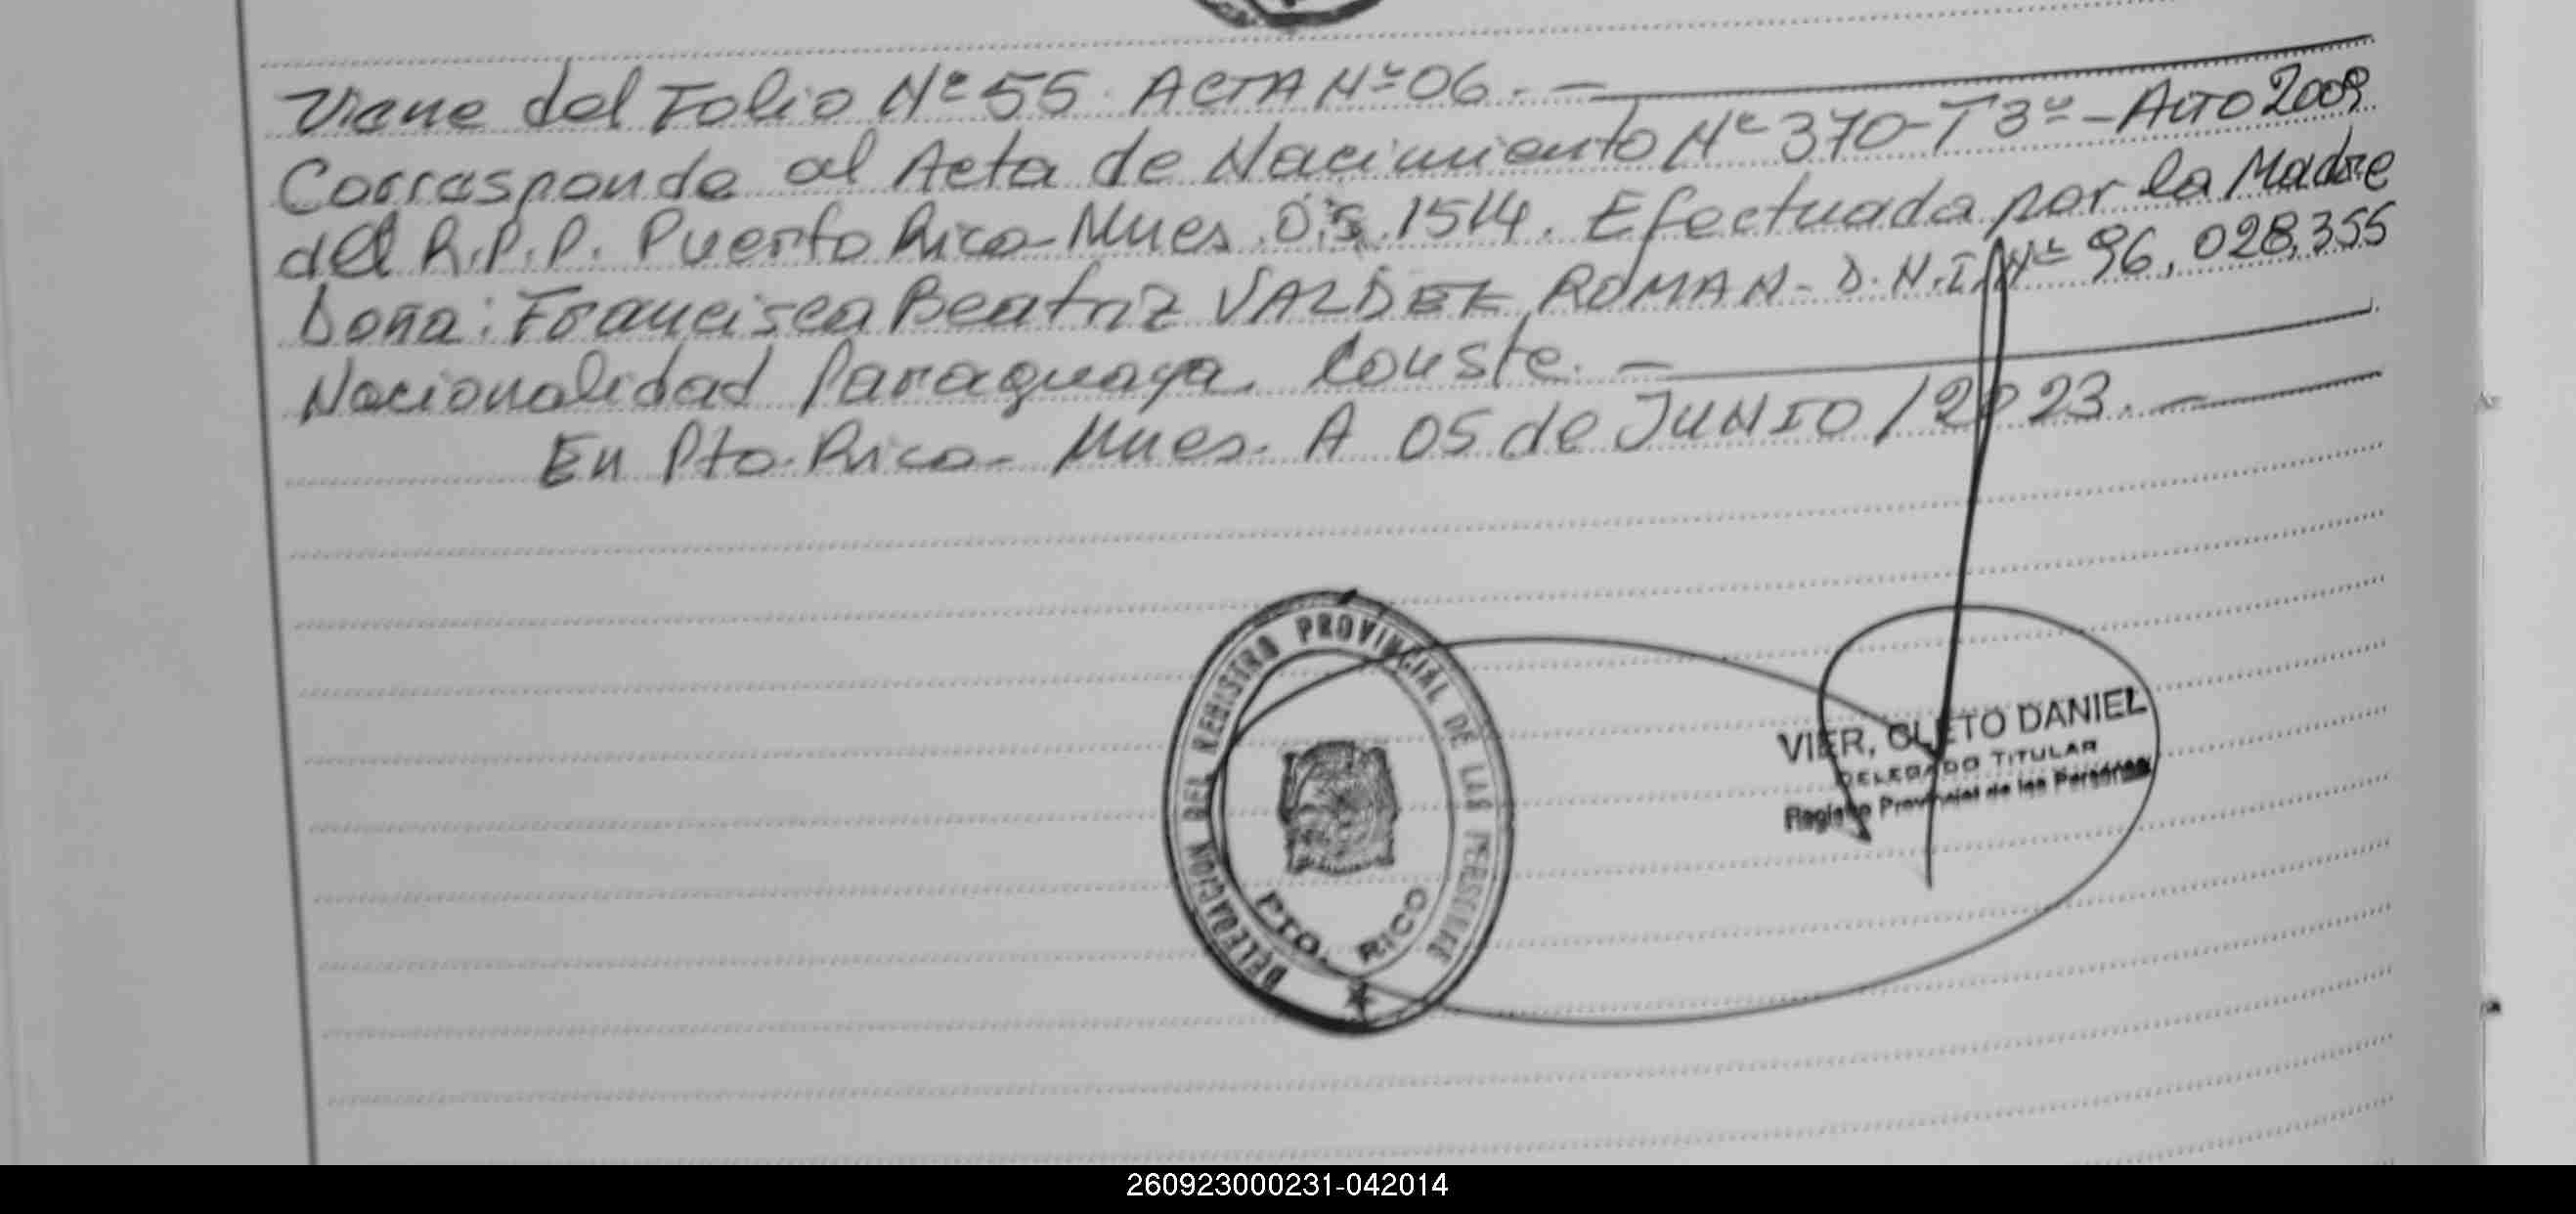 Viene del Folio Nº 55. ACTA Nº 06. —
Corresponde al Acta de Nacimiento Nº 370-T3º-AÑO 2009
del R.P.P. Puerto Rico-Mnes. O.S. 1514. Efectuada por la Madre
Doña: Francisca Beatriz VALDEZ ROMAN- D.N.I Nº 96,028,355
Nacionalidad Paraguaya. Conste. —
En Pto. Rico- Mnes. A 05 de JUNIO/2023. —
DELEGACION DEL REGISTRO PROVINCIAL DE LAS PERSONAS
PTO. RICO
VIER, CLETO DANIEL
DELEGADO TITULAR
Registro Provincial de las Personas
260923000231-042014